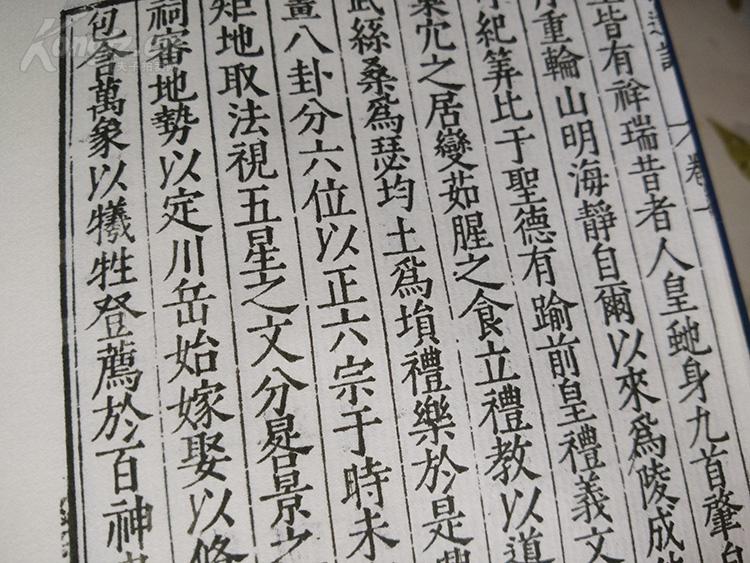 遺記 卷一
皆有祥瑞昔者人皇虵身九首肇自
重輪山明海靜自爾以來爲陵成
紀筭比于聖德有踰前皇禮義文
巢穴之居變茹腥之食立禮教以道
武絲桑爲瑟均土爲塤禮樂於是
畫八卦分六位以正六宗于時未
矩地取法視五星之文分晷景之
祠審地勢以定川岳始嫁娶以脩
包含萬象以犧牲登薦於百神